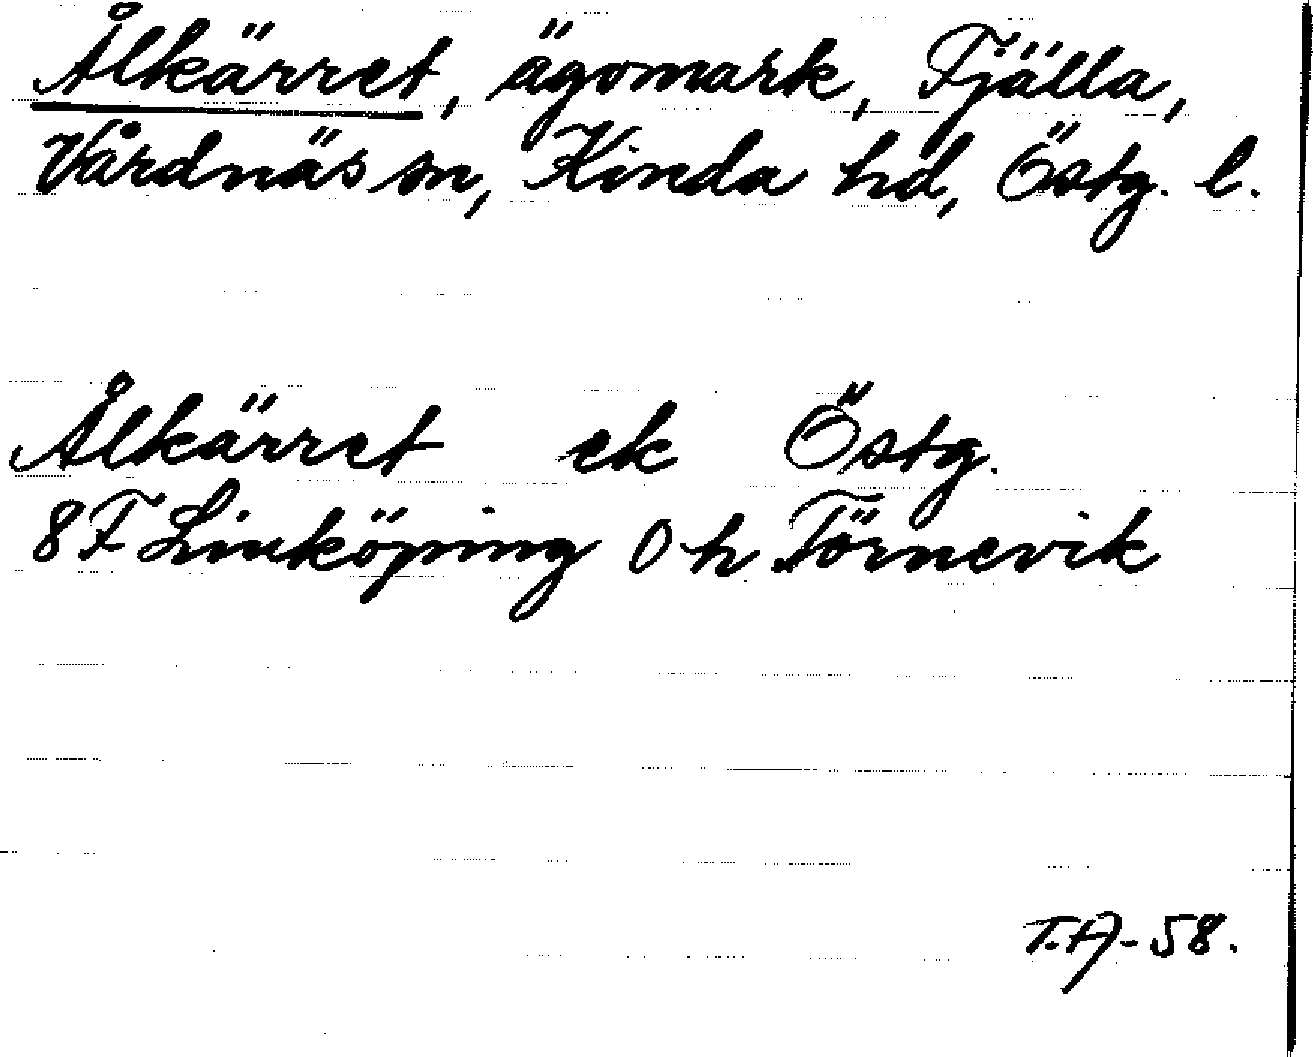 Ålkärret, ägomark, Fjälla,
Vårdnäs sn, Kinda hd, Östg. l.
Ålkärret ek Östg.
8F Linköping 0 h Törnevik
T.A-58.